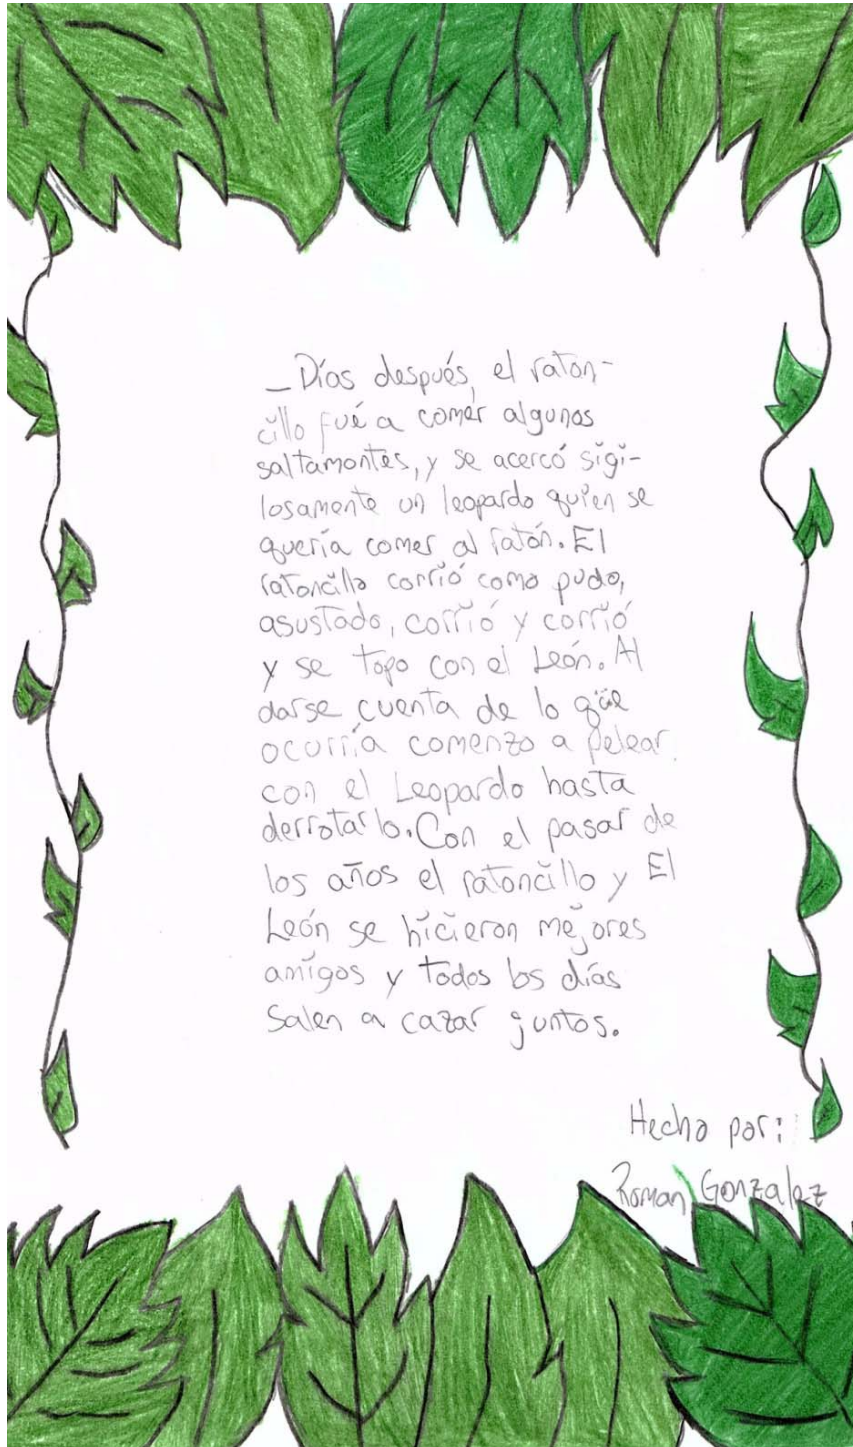 _Días después, el raton-
cillo fué a comer algunos
saltamontes, y se acercó sigi-
losamente un leopardo quien se
quería comer al ratón. El
ratoncillo corrió como pudo,
asustado, corrió y corrió
y se topo con el León. Al
darse cuenta de lo que
ocurría comenzo a pelear
con el Leopardo hasta
derrotarlo. Con el pasar de
los años el ratoncillo y El
León se hicieron mejores
amigos y todos los días
salen a cazar juntos.
Hecho por:
Roman Gonzalez